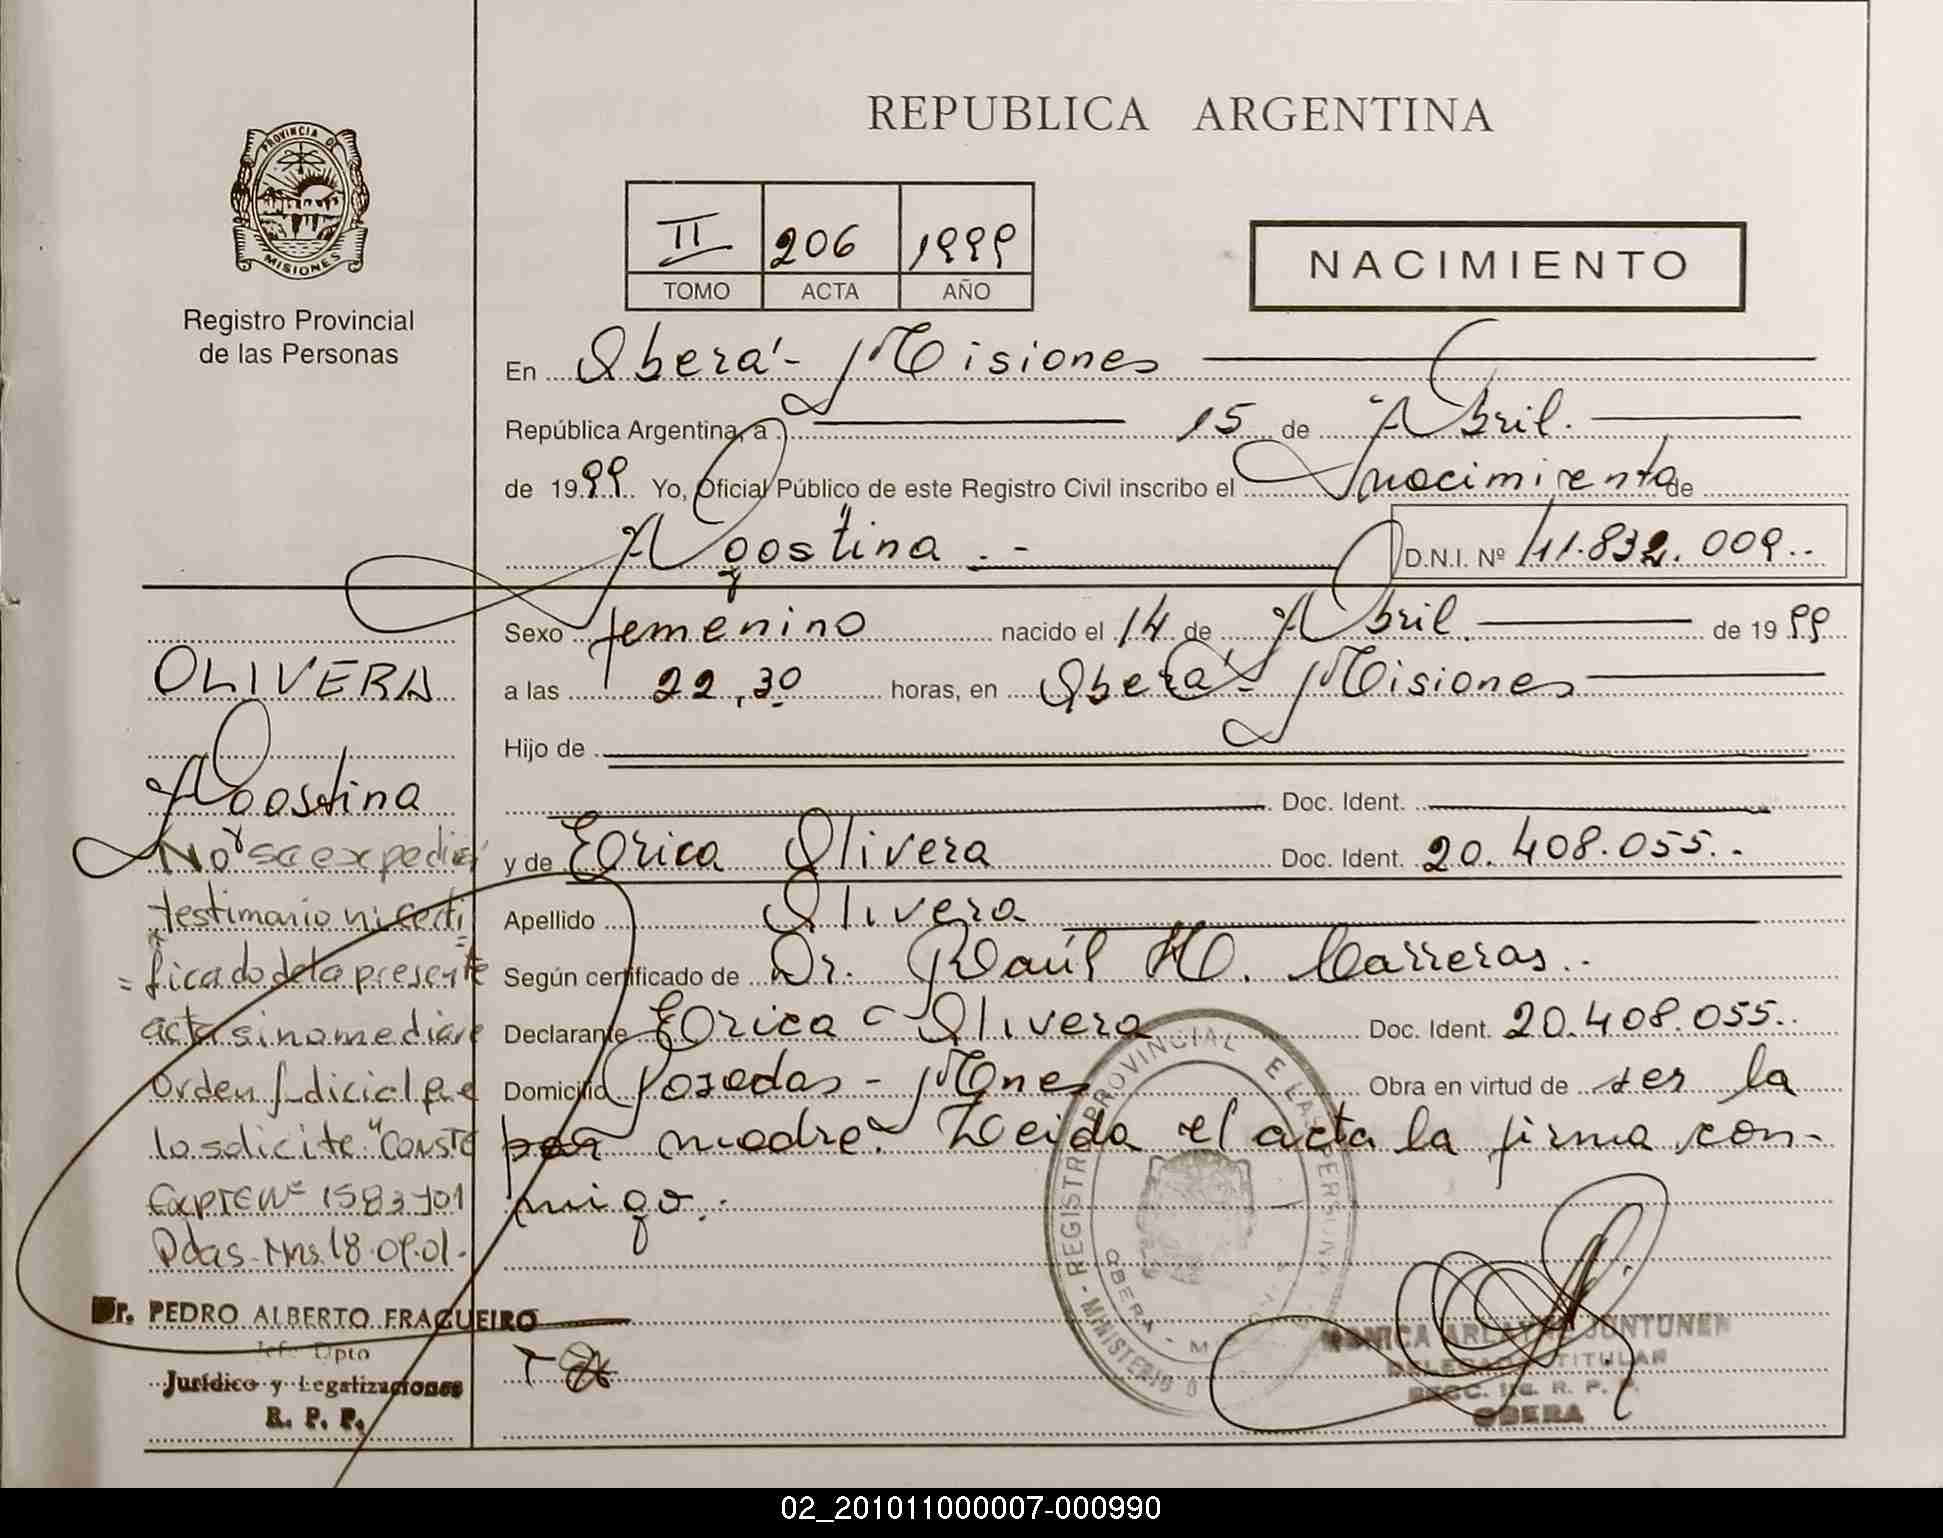 REPUBLICA ARGENTINA
PROVINCIA DE
MISIONES
Registro Provincial
de las Personas
II 206 1999
TOMO ACTA AÑO
NACIMIENTO
En Oberá - Misiones
República Argentina, a 15 de Abril.
de 1999. Yo, Oficial Público de este Registro Civil inscribo el nacimiento de
Agostina . - D.N.I. Nº 41.832.009..
Sexo femenino nacido el 14 de Abril. de 1999
a las 22,30 horas, en Oberá - Misiones
Hijo de
Doc. Ident.
y de Erica Olivera Doc. Ident. 20.408.055..
Apellido Olivera
Según certificado de Dr. Raúl H. Carreras..
Declarante Erica Olivera Doc. Ident. 20.408.055..
Domicilio Posadas - Mnes Obra en virtud de ser la
madre. Leída el acta la firma con-
migo.-
OLIVERA
Agostina
"No se expedira
testimonio ni certi
=ficado de la presente
acta si no mediare
Orden Judicial que
lo solicite" Conste
Expte Nº 1583-J01
Pdas-Mns 18.09.01.
Dr. PEDRO ALBERTO FRAGUEIRO
Jefe Dpto
Jurídico y Legalizaciones
R. P. P.
REGISTRO PROVINCIAL DE LAS PERSONAS - MINISTERIO
OBERA -
MONICA ARLAYNE JUNTUNEN
DELEGADO TITULAR
R. P. P.
OBERA
02_201011000007-000990